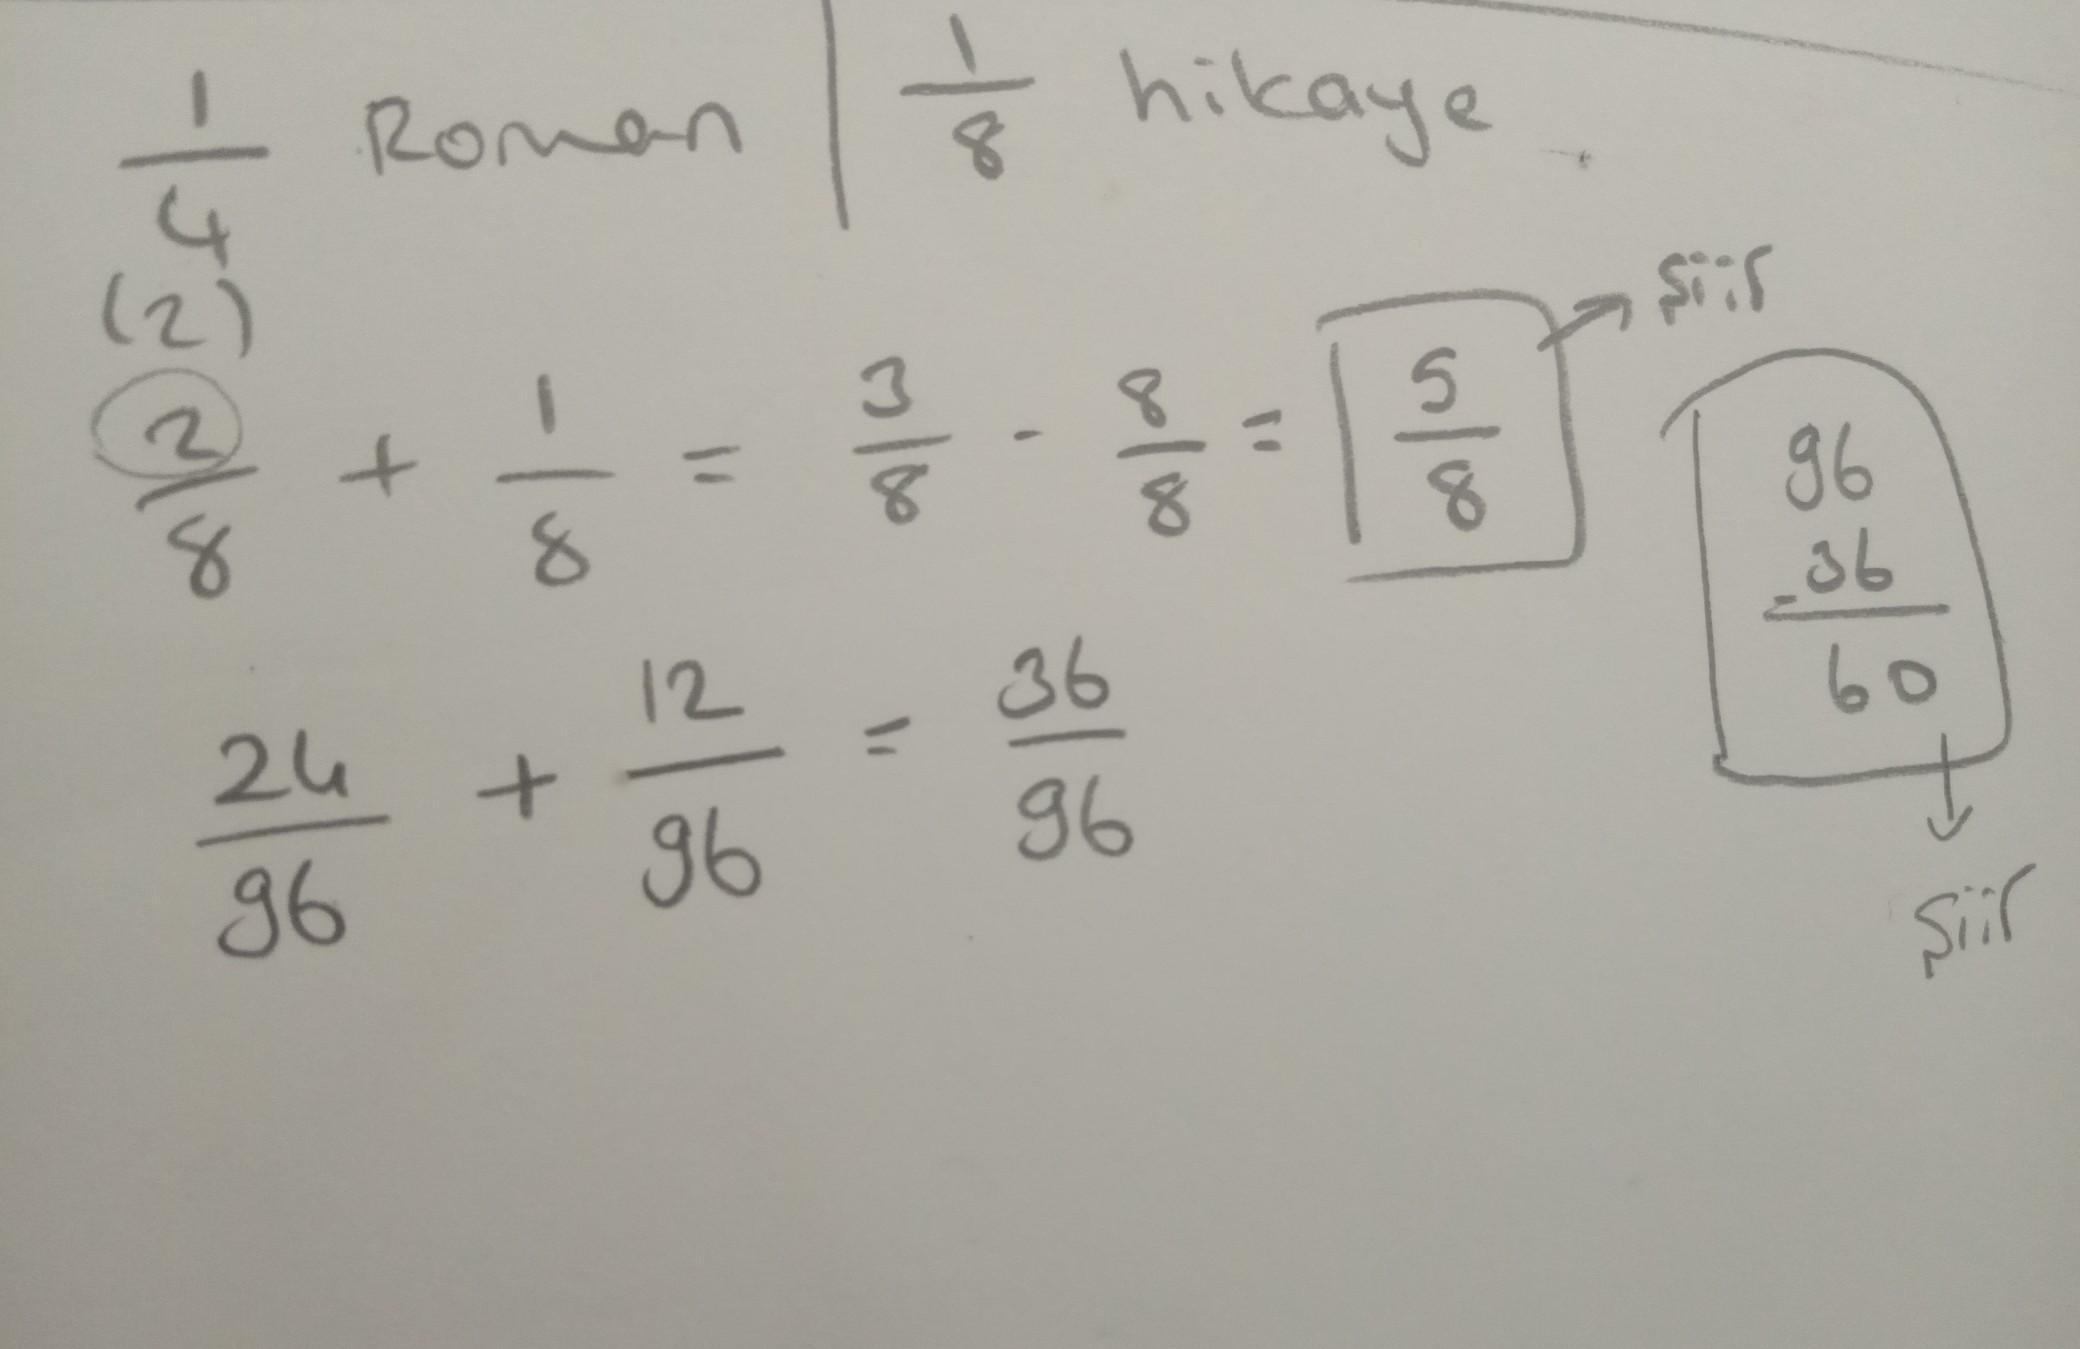 1/4 Roman | 1/8 hikaye
(2)
2/8 + 1/8 = 3/8 - 8/8 = 5/8 → şiir
24/96 + 12/96 = 36/96
96
-36
60
↓
şiir